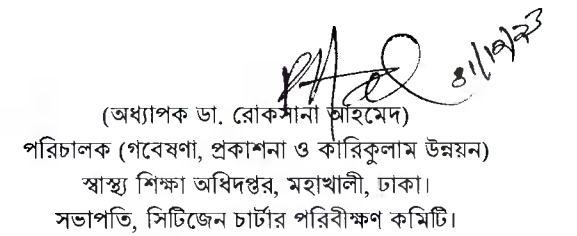 ৩১/১২/২৩
(অধ্যাপক ডা. রোকসানা আহমেদ)
পরিচালক (গবেষণা, প্রকাশনা ও কারিকুলাম উন্নয়ন)
স্বাস্থ্য শিক্ষা অধিদপ্তর, মহাখালী, ঢাকা।
সভাপতি, সিটিজেন চার্টার পরিবীক্ষণ কমিটি।